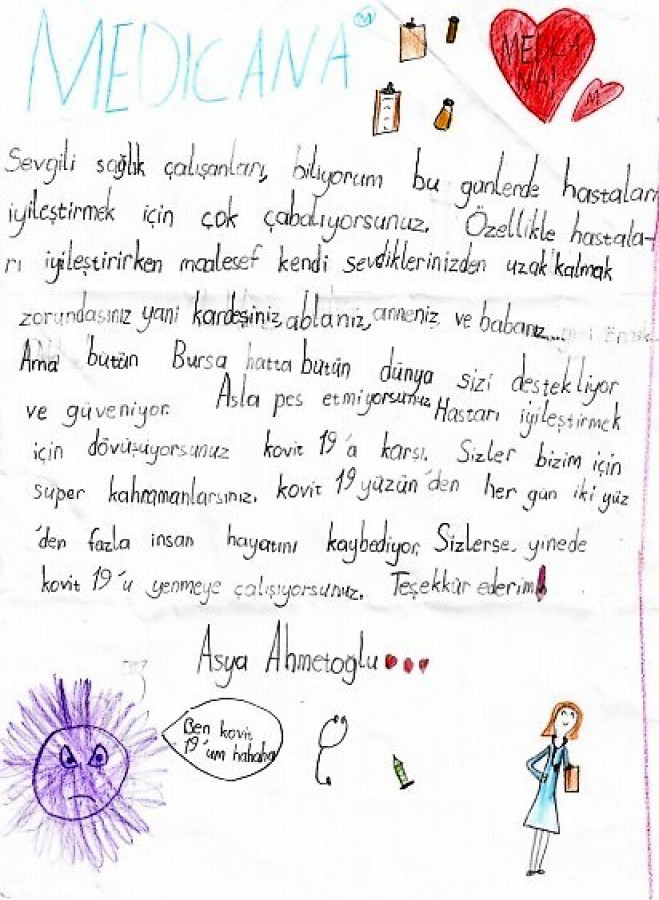 MEDICANA
MEDİCA
NA!
M
Sevgili sağlık çalışanları, biliyorum bu günlerde hastaları
iyileştirmek için çok çabalıyorsunuz. Özellikle hastala-
rı iyileştirirken maalesef kendi sevdiklerinizden uzak kalmak
zorundasınız yani kardeşiniz, ablanız, anneniz ve babanız...
Ama bütün Bursa hatta bütün dünya sizi destekliyor
ve güveniyor. Asla pes etmiyorsunuz. Hastarı iyileştirmek
için dövüşüyorsunuz kovit 19'a karşı. Sizler bizim için
super kahramanlarsınız. kovit 19 yüzün'den her gün iki yüz
'den fazla insan hayatını kaybediyor. Sizlerse yinede
kovit 19'u yenmeye çalışıyorsunuz. Teşekkür ederim!
Asya Ahmetoğlu
Ben kovit
19'um hahaha